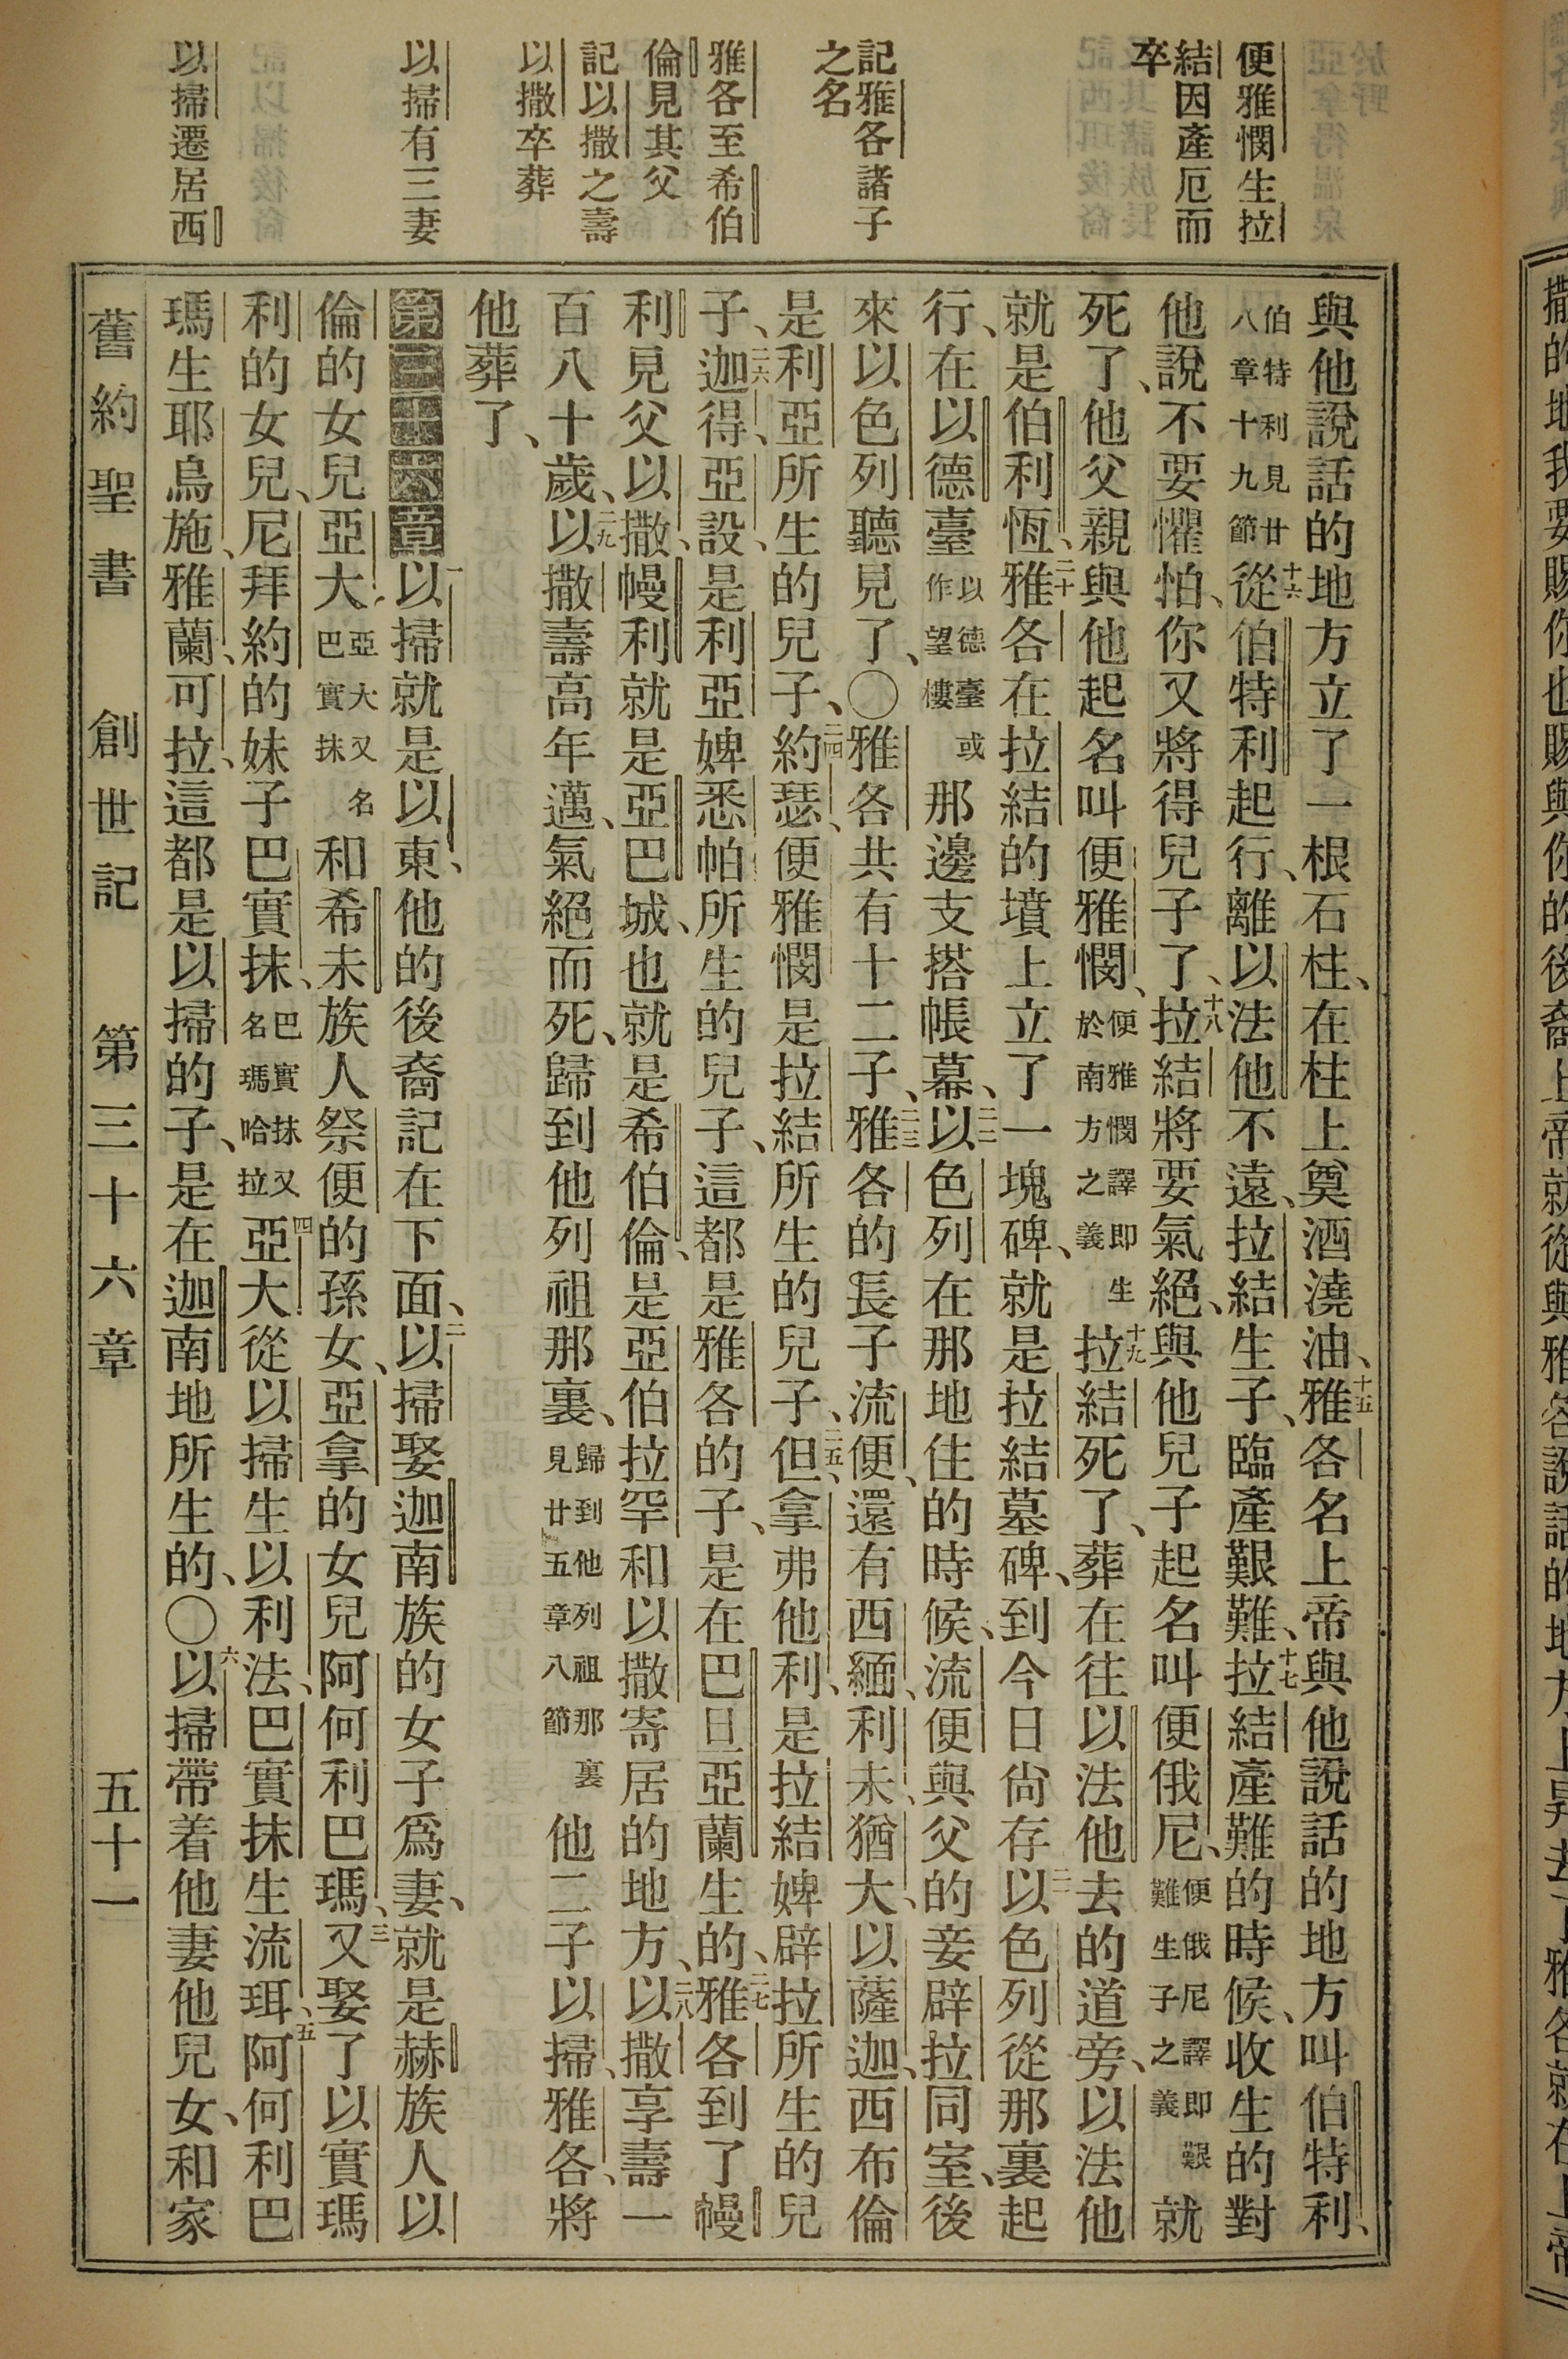 便雅憫生拉
結因產厄而
卒
記雅各諸子
之名
雅各至希伯
倫見其父
記以撒之壽
以撒卒葬
以掃有三妻
以掃遷居西
與他說話的地方立了一根石柱、在柱上奠酒澆油、十五雅各名上帝與他說話的地方叫伯特利、
伯特利見廿八章十九節十六從伯特利起行、離以法他不遠、拉結生子、臨產艱難、十七拉結產難的時候、收生的對
他說不要懼怕、你又將得兒子了、十八拉結將要氣絕、與他兒子起名叫便俄尼、便俄尼譯即艱難生子之義就
死了、他父親與他起名叫便雅憫、便雅憫譯即生於南方之義十九拉結死了、葬在往以法他去的道旁、以法他
就是伯利恆、二十雅各在拉結的墳上立了一塊碑、就是拉結墓碑、到今日尙存二一以色列從那裏起
行、在以德臺以德臺或作望樓那邊支搭帳幕、二二以色列在那地住的時候、流便與父的妾辟拉同室、後
來以色列聽見了、〇雅各共有十二子、二三雅各的長子流便、還有西緬、利未、猶大、以薩迦、西布倫
是利亞所生的兒子、二四約瑟、便雅憫是拉結所生的兒子、二五但、拿弗他利、是拉結婢辟拉所生的兒
子、二六迦得、亞設、是利亞婢悉帕所生的兒子、這都是雅各的子、是在巴旦亞蘭生的、二七雅各到了幔
利見父以撒、幔利就是亞巴城、也就是希伯倫、是亞伯拉罕和以撒寄居的地方、二八以撒享壽一
百八十歲、二九以撒壽高年邁、氣絕而死、歸到他列祖那裏、歸到他列祖那裏見廿五章八節他二子以掃、雅各、將
他葬了、
第三十六章一以掃就是以東、他的後裔記在下面、二以掃娶迦南族的女子爲妻、就是赫族人以
倫的女兒亞大、亞大又名巴實抹和希未族人祭便的孫女、亞拿的女兒阿何利巴瑪、三又娶了以實瑪
利的女兒、尼拜約的妹子巴實抹、巴實抹又名瑪哈拉四亞大從以掃生以利法、巴實抹生流珥、五阿何利巴
瑪生耶烏施、雅蘭、可拉、這都是以掃的子、是在迦南地所生的、〇六以掃帶着他妻他兒女、和家
舊約聖書 創世記 第三十六章 五十一